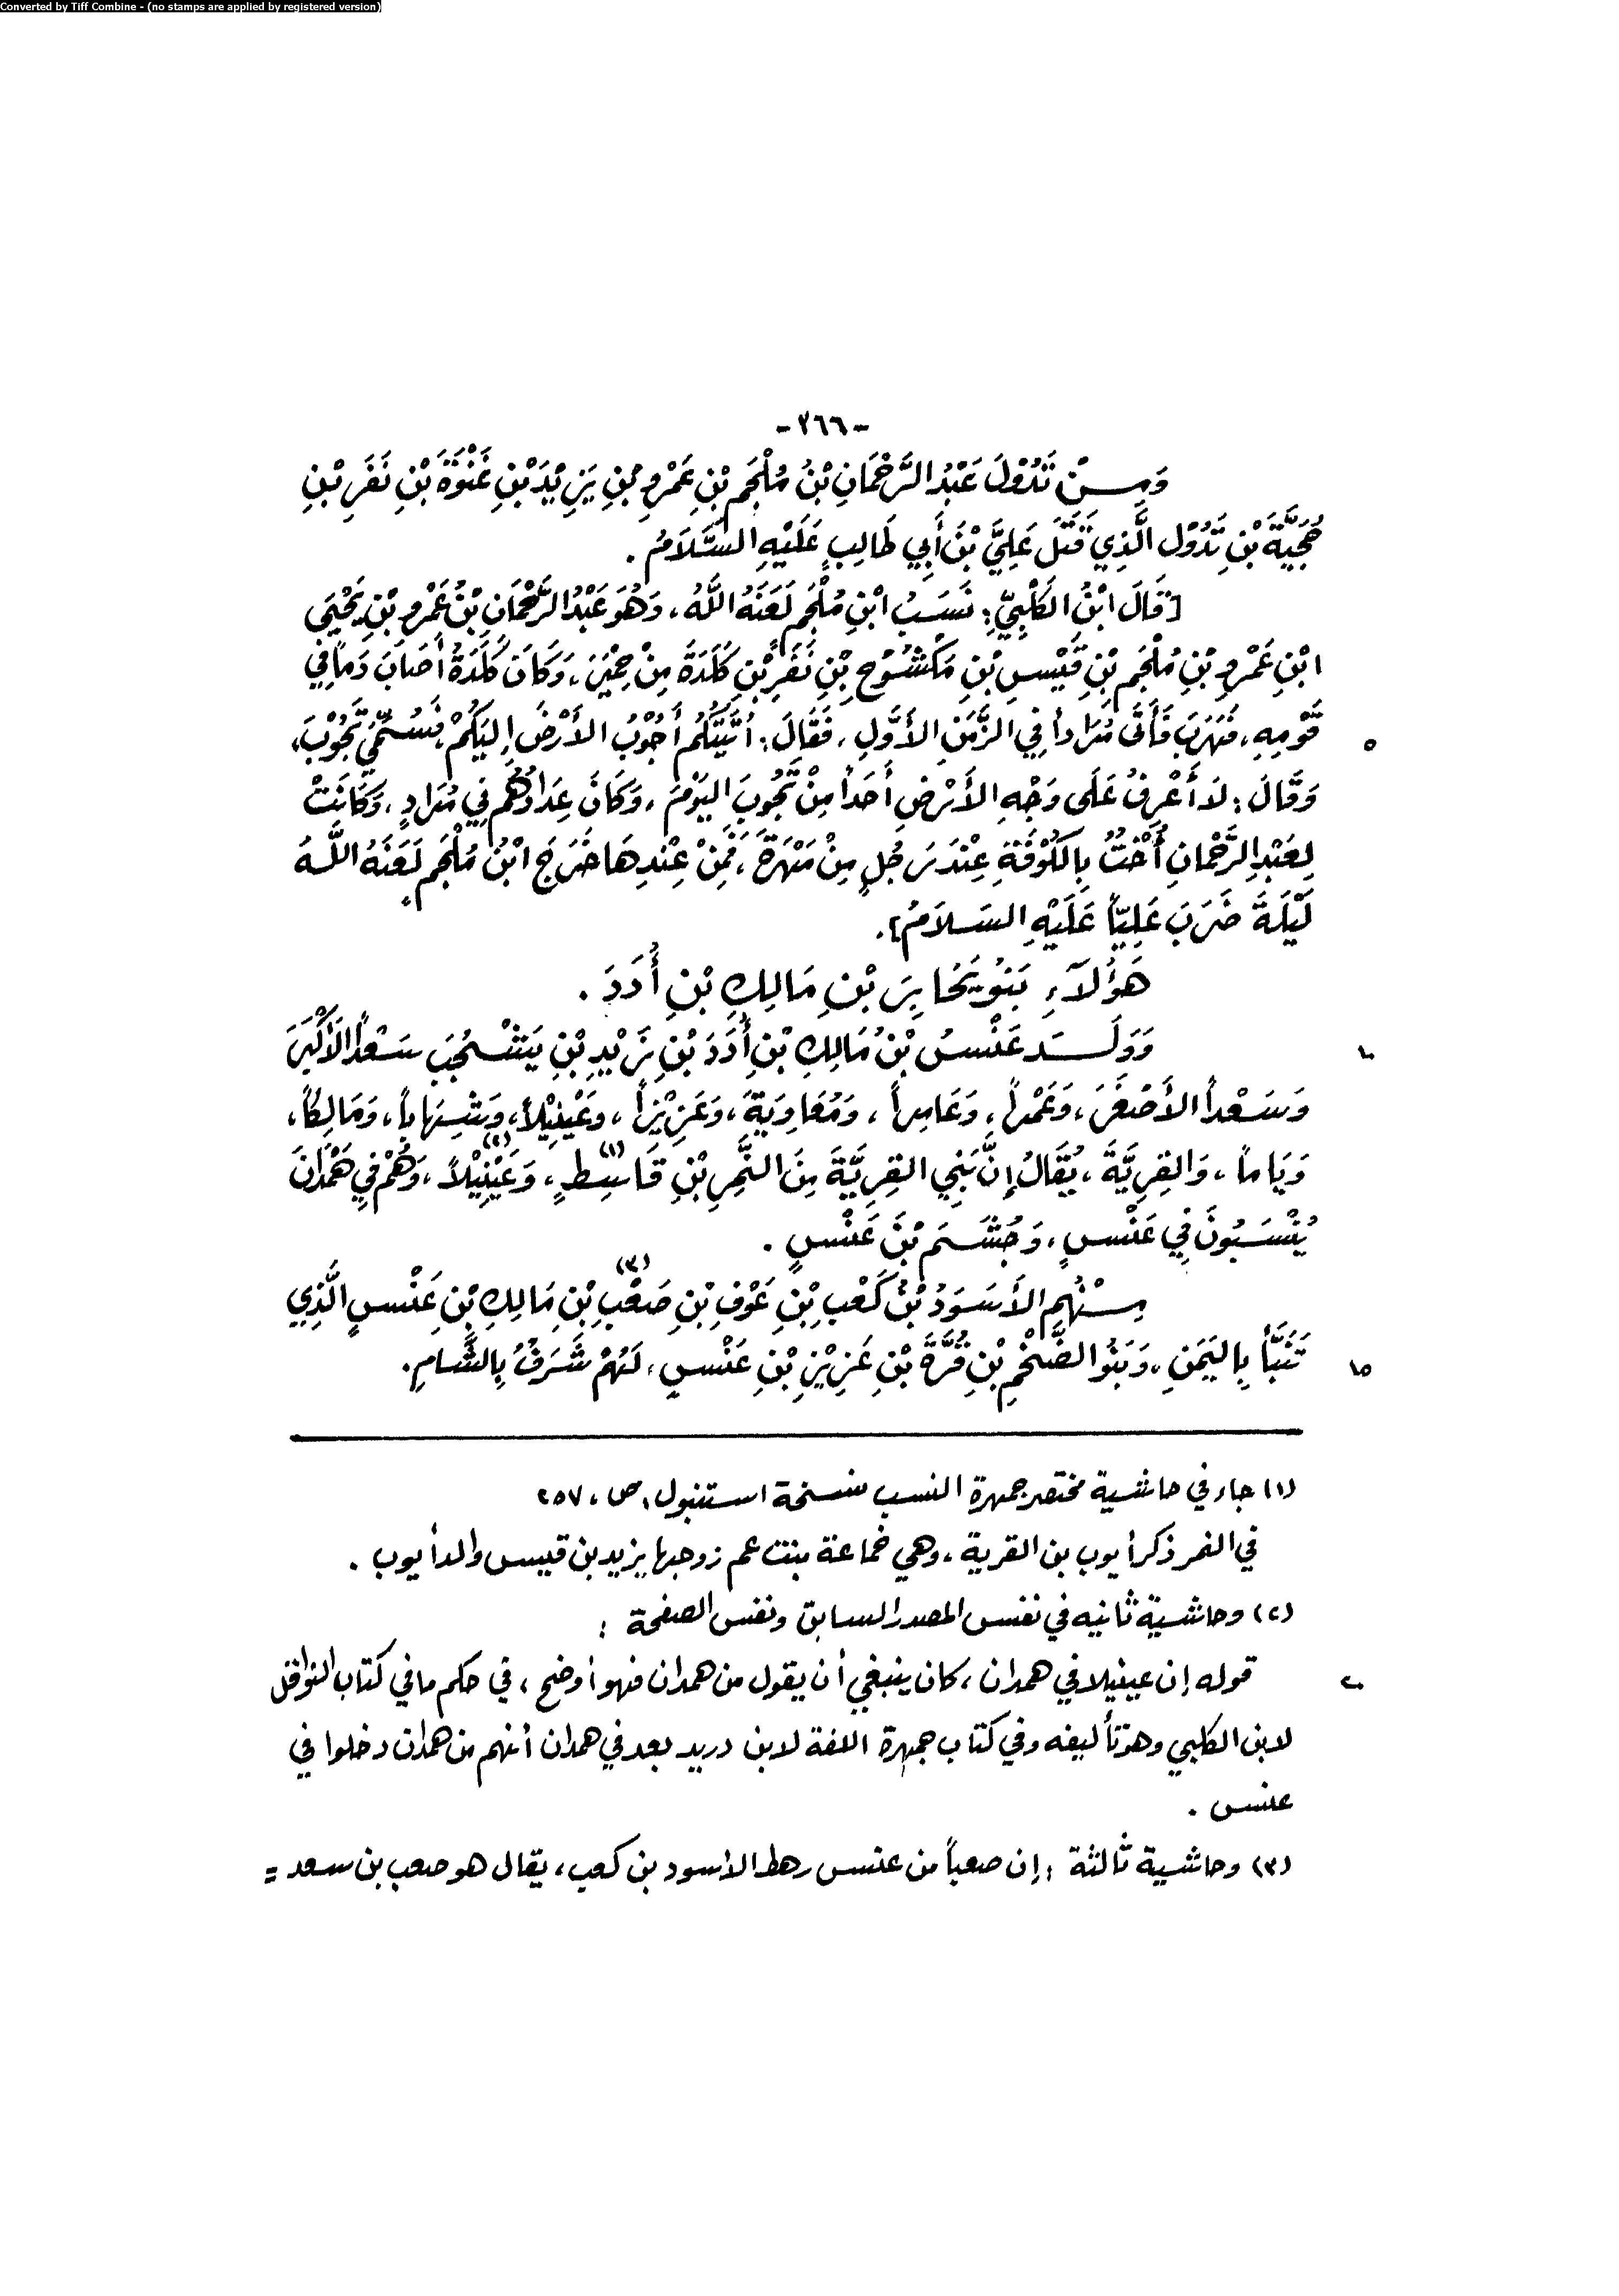 Converted by Tiff Combine - (no stamps are applied by registered version)
-٣٦٦-
وَمِنْ تَدُوْلَ عَبْدُ الرَّحْمَانِ بْنُ مُلْجَمِ بْنِ عَمْرِو بْنِ يَزِيْدَ بْنِ غَنْوَةَ بْنِ نَفَرِ بْنِ
حُجَيَّةَ بْنِ تَدُوْلِ الَّذِي قَتَلَ عَلِيَّ بْنَ أَبِي طَالِبٍ عَلَيْهِ السَّلَامُ .
[قَالَ ابْنُ الكَلْبِيِّ: نَسَبُ ابْنِ مُلْجَمٍ لَعَنَهُ اللَّهُ، وَهُوَ عَبْدُ الرَّحْمَانِ بْنُ عَمْرِو بْنِ يَحْيَى
ابْنِ عَمْرِو بْنِ مُلْجَمِ بْنِ قَيْسِ بْنِ مَكْشُوْحِ بْنِ نَفَرِ بْنِ كَلَدَةَ مِنْ حِمْيَرَ، وَكَانَ كَلَدَةُ أَصَابَ دَمَاً فِي
قَوْمِهِ، فَهَرَبَ فَأَتَى مُرَادَاً فِي الزَّمَنِ الأَوَّلِ، فَقَالَ: أَتَيْتُكُم أَجُوْبُ الأَرْضَ إِليَكُمْ، فَسُمِّيَ تَجُوْبَ،
٥
وَقَالَ: لَا أَعْرِفُ عَلَى وَجْهِ الأَرْضِ أَحَدَاً مِنْ تَجُوبَ اليَوْمَ، وَكَانَ عِدَادُهُم فِي مُرَادٍ، وَكَانَتْ
لِعَبْدِ الرَّحْمَانِ أُخْتٌ بِالكُوْفَةِ عِنْدَ رَجُلٍ مِنْ مَهْرَةَ، فَمِنْ عِنْدِهَا خَرَجَ ابْنُ مُلْجَمٍ لَعَنَهُ اللَّهُ
لَيْلَةَ ضَرَبَ عَلِيَّاً عَلَيْهِ السَلَامُ].
هَؤُلَآءِ بَنُو يُحَابِرَ بْنِ مَالِكِ بْنِ أُدَدَ .
وَوَلَدَ عَنْسُ بْنُ مَالِكِ بْنِ أُدَدَ بْنِ زَيْدِ بْنِ يَشْجُبَ سَعْدَاً الأَكْبَرَ
١٠
وَسَعْدَاً الأَصْغَرَ، وَعَمْرَاً، وَعَامِرَاً، وَمُعَاوِيَةَ، وَعَزِيْزَاً، وَعَيْنِيْلَاً، وَشِهَابَاً، وَمَالِكَاً،
وَيَامَاً، وَالقِرِيَّةَ، يُقَالُ إِنَّ بَنِي القِرِيَّةَ مِنَ النَّمِرِ بْنِ قَاسِطٍ(١)، وَعَيْنِيْلَاً(٢)، وَهُمْ فِي هَمْدَانَ
يُنْسَبُونَ فِي عَنْسٍ، وَجُشَمَ بْنَ عَنْسٍ .
مِنْهُمِ الأَسَوَدُ بْنُ كَعْبِ بْنِ عَوْفِ بْنِ صَعْبِ(٣) بْنِ مَالِكِ بْنِ عَنْسٍ الَّذِي
تَنَبَّأَ بِاليَمَنِ، وَبَنُو الضَّخْمِ بْنِ قُرَّةَ بْنِ عَزِيْزِ بْنِ عَنْسٍ، لَهُمْ شَرَفٌ بِالشَّامِ.
١٥
(١) جاء في حاشية مختصر جمهرة النسب نسخة استنبول، ص، ٢٥٧
في النمر ذكر أيوب بن القرية، وهي خماعة بنت عم زوجها يزيد بن قيس والد أيوب .
(٢) وحاشية ثانيه في نفس المصدر السابق ونفس الصفحة :
قوله إن عينيلا في همدان، كان ينبغي أن يقول من همدان فهو أوضح، في حكم ما في كتاب النوافل
٢٠
لابن الكلبي وهو تأليفه وفي كتاب جمهرة اللغة لابن دريد بعد في همدان أنهم من همدان دخلوا في
عنس .
(٣) وحاشية ثالثة : إن صعباً من عنس رهط الأسود بن كعب، يقال هو صعب بن سعد =